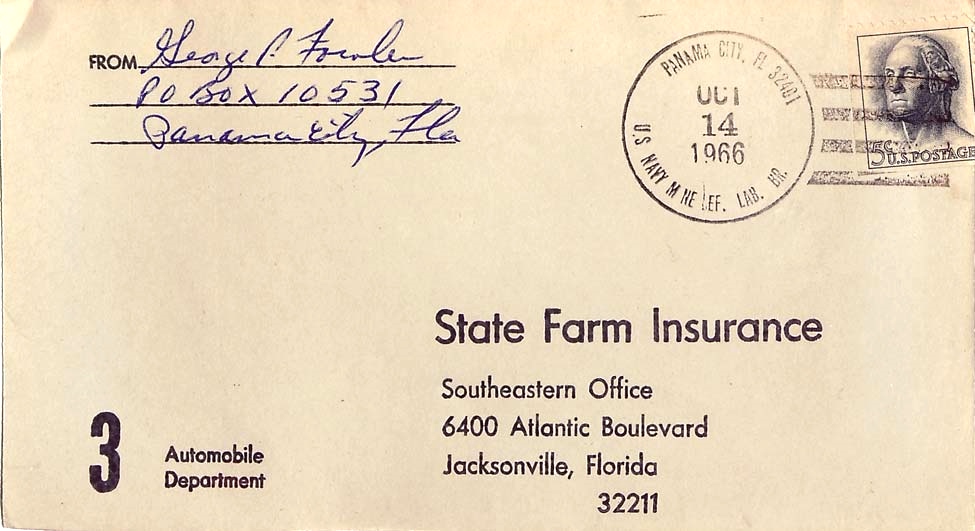 FROM George P. Fowler
PO Box 10531
Panama City, Fla
PANAMA CITY, FL 32401
OCT
14
1966
U.S. NAVY M NE EF. LAB. BR.
5c U.S. POSTAGE
State Farm Insurance
Southeastern Office
6400 Atlantic Boulevard
Jacksonville, Florida
32211
3
Automobile
Department